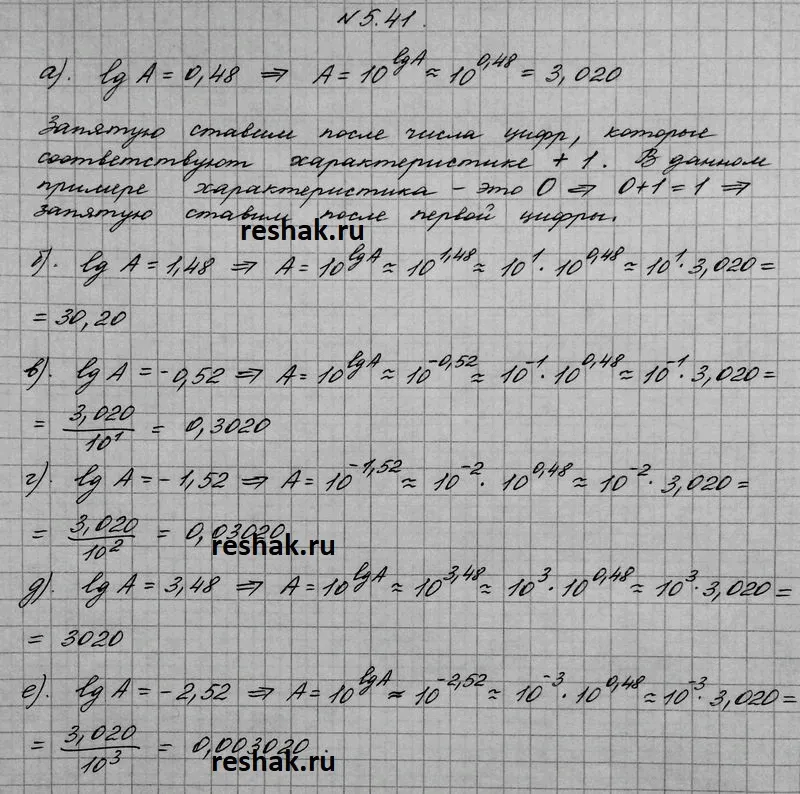 N 5.41.
а). lg A = 0,48 ⇒ A = 10^lgA ≈ 10^0,48 = 3,020
Запятую ставим после числа цифр, которые
соответствуют характеристике + 1. В данном
примере характеристика - это 0 ⇒ 0+1 = 1 ⇒
запятую ставим после первой цифры.
reshak.ru
б). lg A = 1,48 ⇒ A = 10^lgA ≈ 10^1,48 ≈ 10^1 · 10^0,48 ≈ 10^1 · 3,020 =
= 30,20
в). lg A = -0,52 ⇒ A = 10^lgA ≈ 10^-0,52 ≈ 10^-1 · 10^0,48 ≈ 10^-1 · 3,020 =
= 3,020/10^1 = 0,3020
г). lg A = -1,52 ⇒ A = 10^-1,52 ≈ 10^-2 · 10^0,48 ≈ 10^-2 · 3,020 =
= 3,020/10^2 = 0,03020
reshak.ru
д). lg A = 3,48 ⇒ A = 10^lgA ≈ 10^3,48 ≈ 10^3 · 10^0,48 ≈ 10^3 · 3,020 =
= 3020
е). lg A = -2,52 ⇒ A = 10^lgA ≈ 10^-2,52 ≈ 10^-3 · 10^0,48 ≈ 10^-3 · 3,020 =
= 3,020/10^3 = 0,003020.
reshak.ru